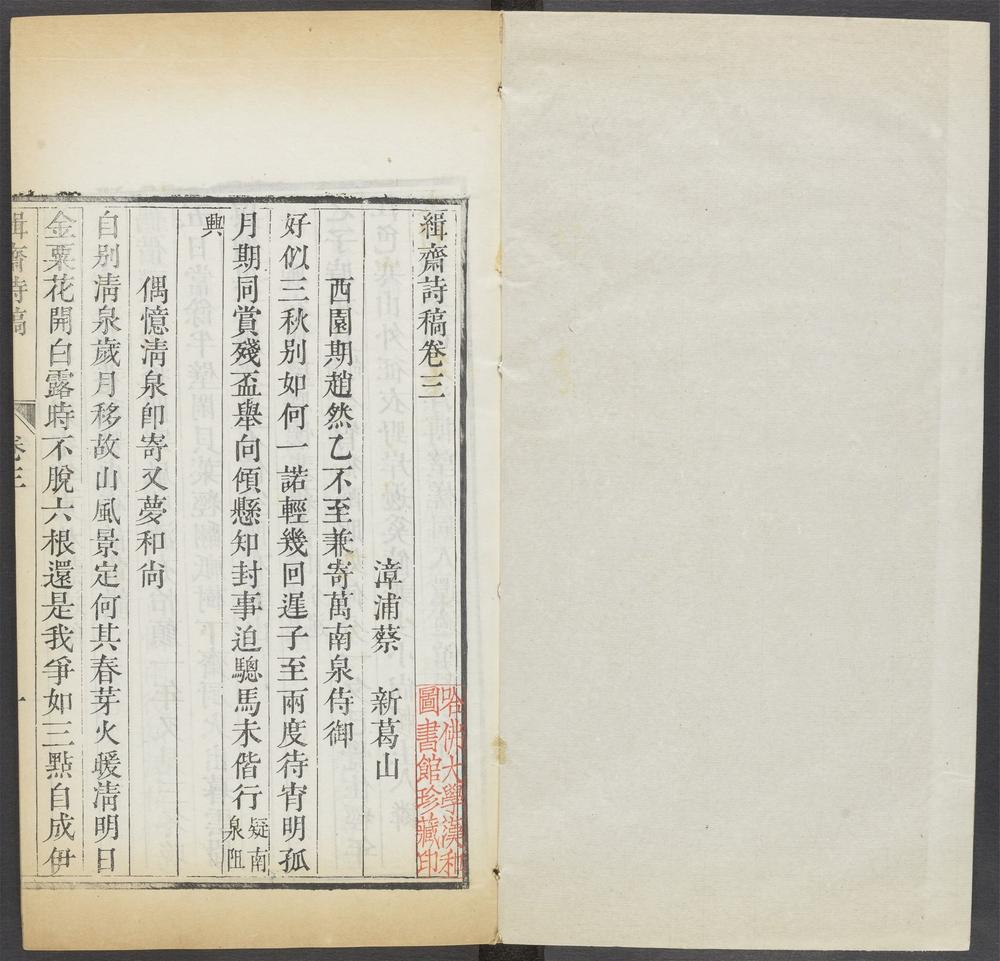 緝齋詩稿卷三
漳浦蔡　新葛山
西園期趙然乙不至兼寄萬南泉侍御
好似三秋别如何一諾輕幾回遲子至兩度待宵明孤
月期同賞殘盃舉向傾懸知封事迫驄馬未偕行疑南
泉阻
興
偶憶淸泉卽寄又夢和尙
自别淸泉歲月移故山風景定何其春芽火暖淸明日
金粟花開白露時不脫六根還是我爭如三點自成伊
緝齋詩稿　卷三　一
哈佛大學漢和
圖書館珍藏印